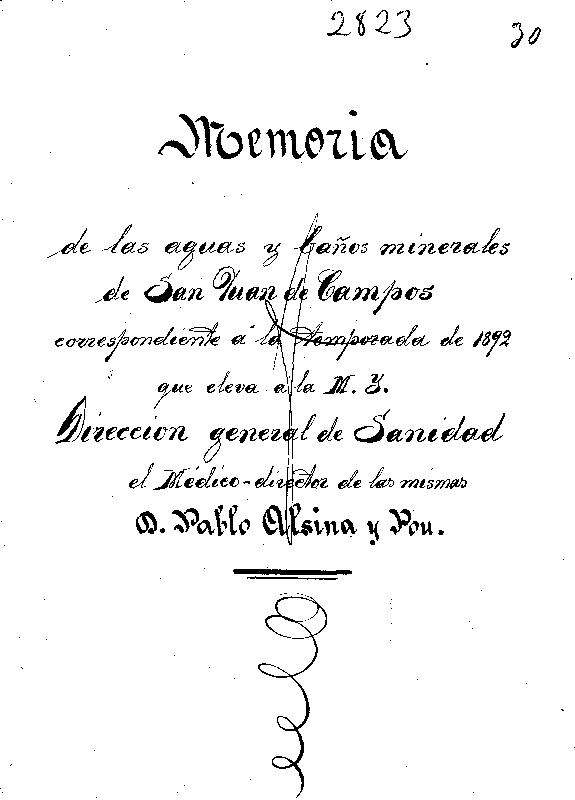 2823
30
Memoria
de las aguas y baños minerales
de San Juan de Campos
correspondiente á la temporada de 1892
que eleva a la M. Y.
Direccion general de Sanidad
el Médico-director de las mismas
D. Pablo Alsina y Pou.